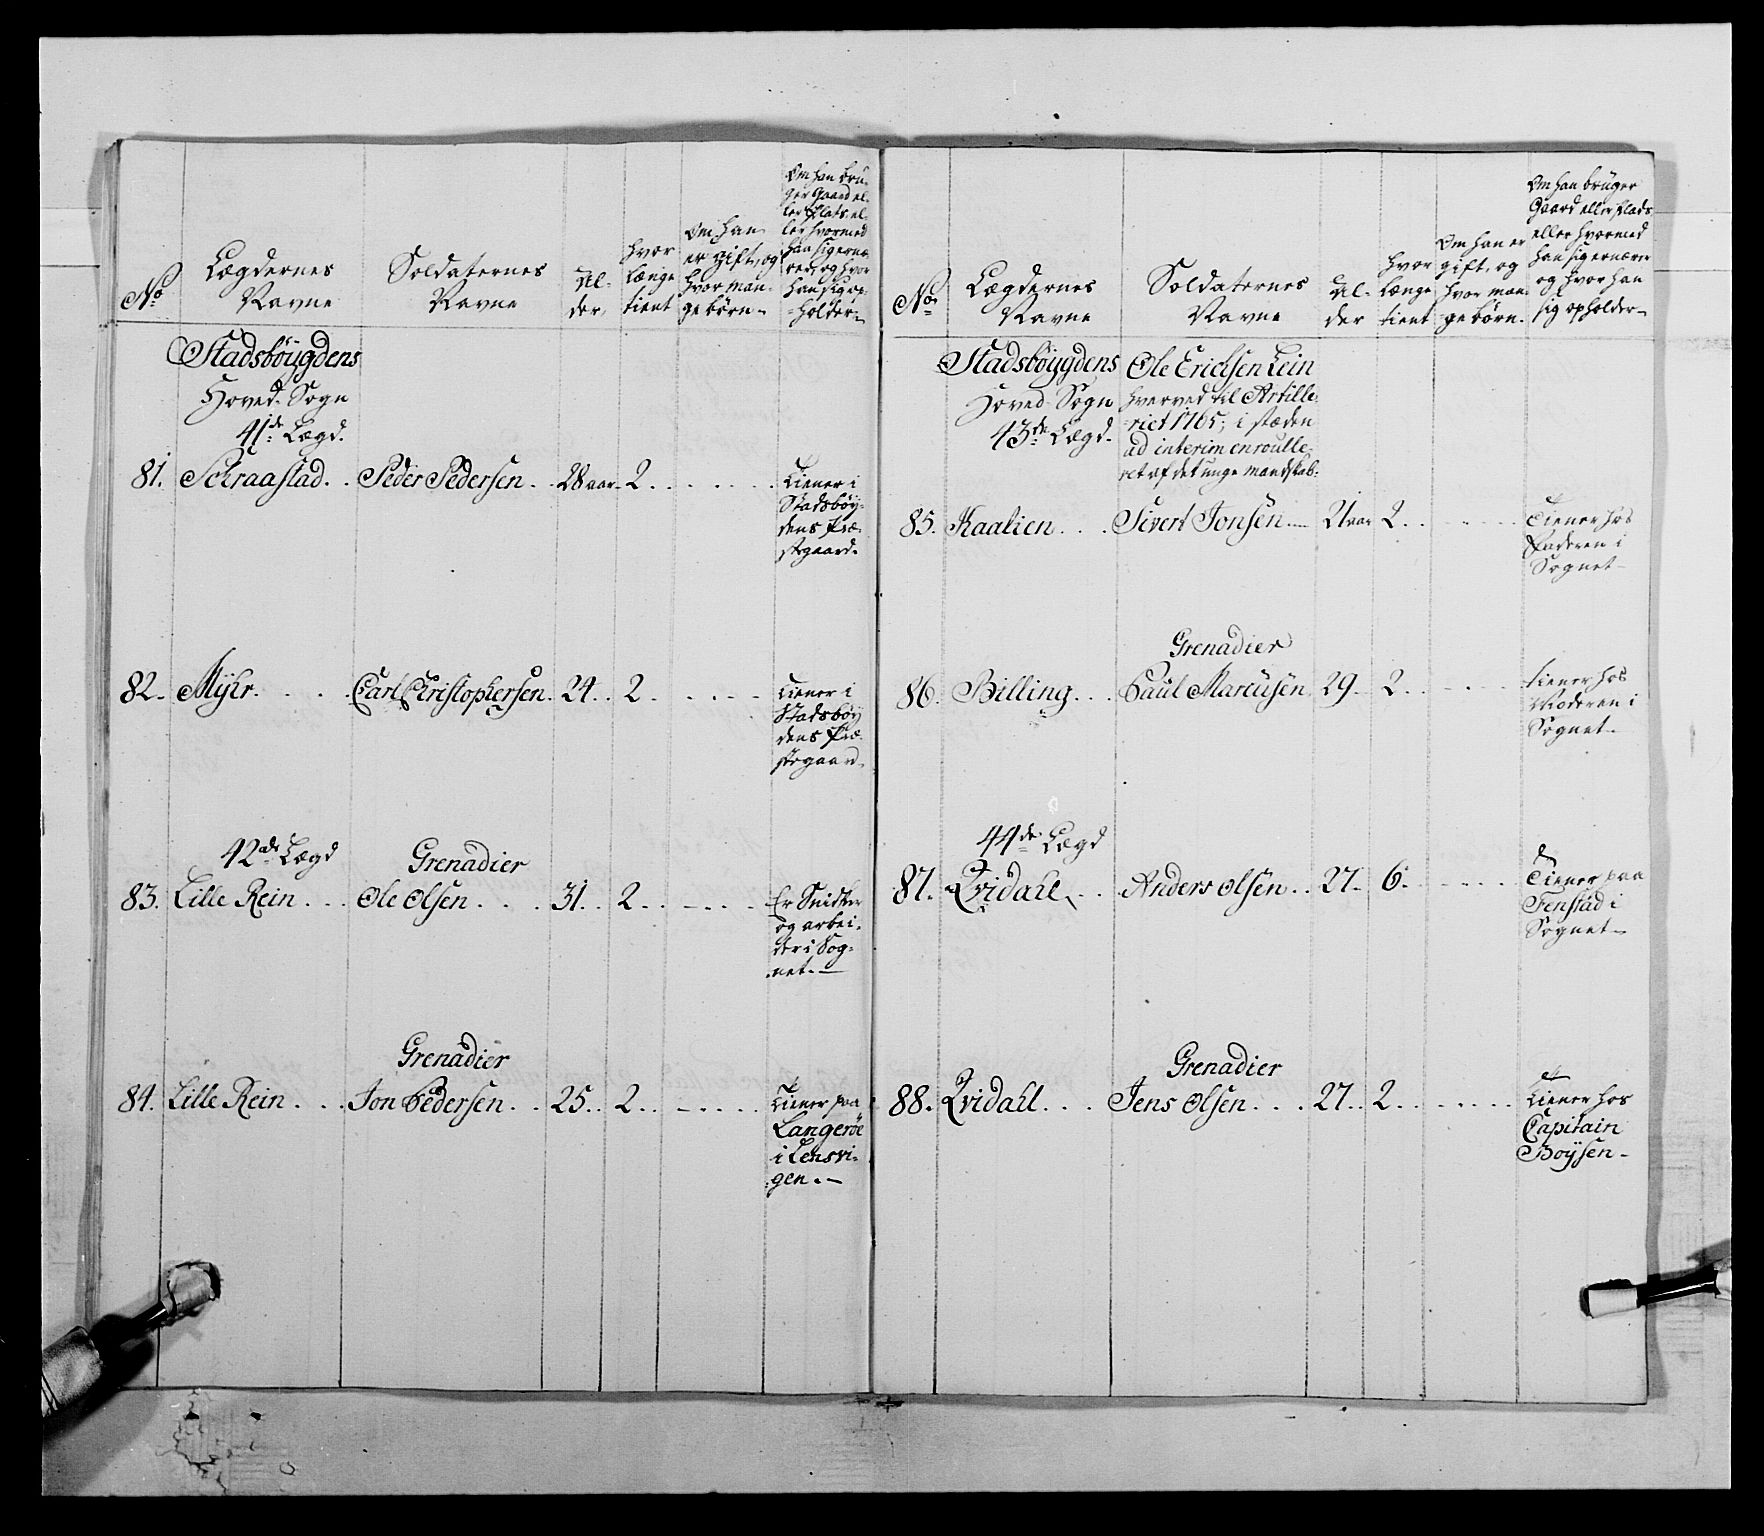 No
Lægdernes
Navne
Soldaternes
Navne
Al-
der,
hvor
længe
tient
Om han
er gift, og
hvor man-
ge börn-
Om han bru-
ger Gaard el-
ler Plats, el-
ler hvormed
han sig ernæ-
rer, og hvor
han sig op-
holder-
Stadsböygdens
Hoved-Sogn
41de Lægd.
81. Schraastad. . Peder Pedersen . . 28 aar. 2. . . . . . . Tiener i
Stadsböy-
dens Præ-
stegaard.
82. Myhr. . . . . Carl Christophersen. 24. . 2. . . . . . Tiener i
Stadsböy
dens Præ-
stegaard.
42de Lægd
Grenadier
83. Lille Rein . . . Ole Olsen . . . . 31. . 2. . . . . . Er Snidker
og arbei-
der i Sog-
net. -
Grenadier
84. Lille Rein . . . Jon Pedersen . . 25. . 2. . . . . . Tiener paa
Langeröe
i Lensvi-
gen. -
No
Lægdernes
Navne
Soldaternes
Navne
Al-
der
hvor
længe
tient
Om han er
gift, og
hvor man-
ge börn.
Om han bruger
Gaard eller Plads
eller hvormed
han sig ernærer
og hvor han
sig opholder-
Stadsböygdens
Hoved-Sogn
43de Lægd.
Ole Erichsen Lein
hverved til Artille-
riet 1765; i stæden
ad interim enroulle-
ret af det unge mandskab.
85. Kaalien . . . Sivert Jonsen. 21 aar 2. . . . . . Tiener hos
Faderen i
Sognet-
Grenadier
86. Billing. . . Paul Marcusen 29. 2. . . . . . tiener hos
Moderen i
Sognet.
44de Lægd
87. Qvidahl . . Anders Olsen . . 27. 6. . . . . . Tiener paa
Fenstad i
Sognet-
Grenadier
88. Qvidahl . . . Jens Olsen . . . 27. . 2. . . . . . Tiener hos
Capitain
Boysen-